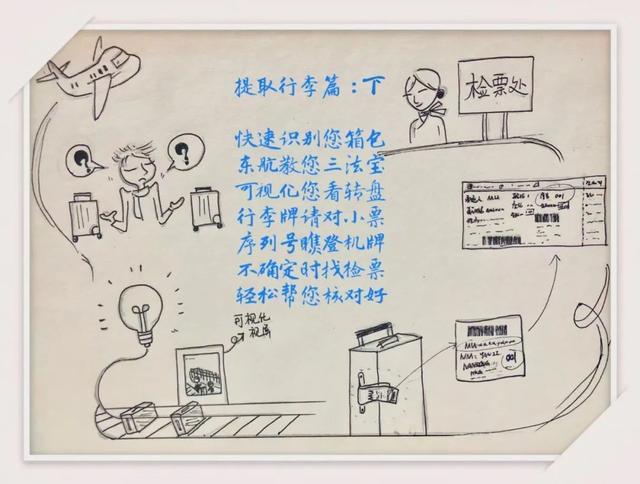 提取行李篇：下
快速识别您箱包
东航教您三法宝
可视化您看转盘
行李牌请对小票
序列号瞧登机牌
不确定时找检票
轻松帮您核对好
检票处
?
?
可视化
视屏
001
001